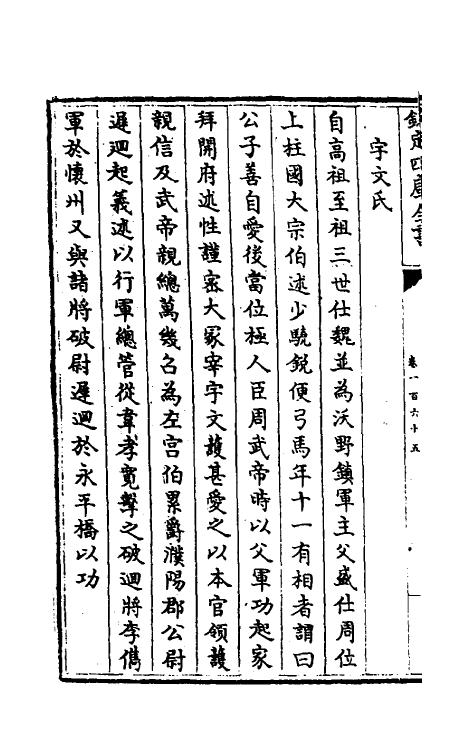 欽定四庫全書
卷一百六十五
字文氏
自高祖至祖三世仕魏並為沃野鎮軍主父盛仕周位
上柱國大宗伯述少驍鋭便弓馬年十一有相者謂曰
公子善自愛後當位極人臣周武帝時以父軍功起家
拜開府述性謹宻大冢宰宇文護甚愛之以本官領護
親信及武帝親總萬幾召為左宫伯累爵濮陽郡公尉
遲迥起義述以行軍總管從韋孝寛擊之破迥將李儁
軍於懷州又與諸將破尉遲迥於永平橋以功